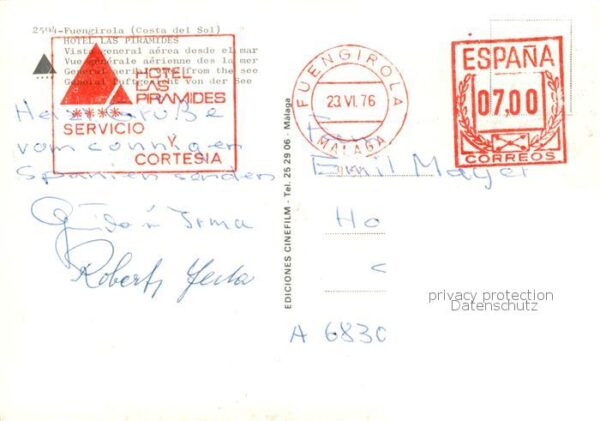 2594-Fuengirola (Costa del Sol)
HOTEL LAS PIRAMIDES
Vista general aérea desde el mar
Vue générale aérienne des la mer
General aerial view from the see
General luftgesicht von der See
HOTEL
LAS
PIRAMIDES
SERVICIO
Y
CORTESIA
Herzl. Grüße
vom sonnigen
Spanien senden
Guido u Irma
Robert
EDICIONES CINEFILM - Tel. 25 29 06 - Málaga
FUENGIROLA
23 VI. 76
MALAGA
ESPAÑA
07,00
CORREOS
Emil Mayer
Ho
A 6830
privacy protection
Datenschutz